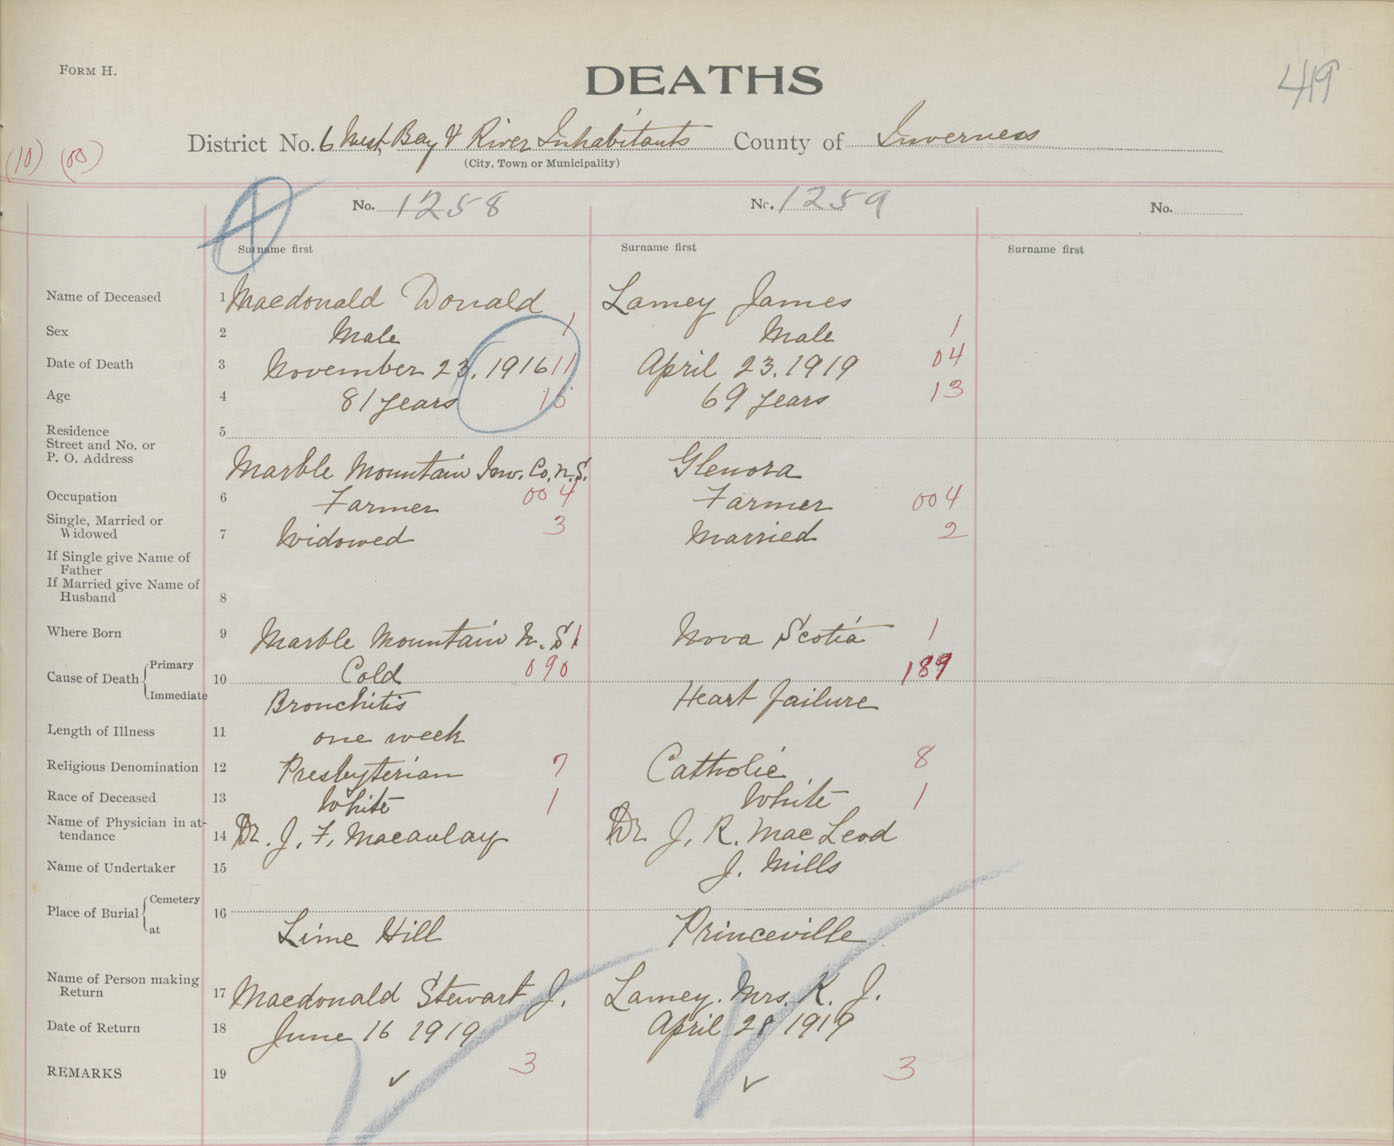 FORM H.
DEATHS
419
District No. 6 West Bay & River Inhabitants County of Inverness
(City, Town or Municipality)
(10) (00)
No. 1258 No. 1259 No.
Surname first Surname first Surname first
Name of Deceased 1 Macdonald Donald Lamey James
Sex 2 Male 1 Male 1
Date of Death 3 November 23, 1916 11 April 23. 1919 04
Age 4 81 years 15 69 years 13
Residence 5
Street and No. or
P. O. Address Marble Mountain Inv. Co. N.S. Glenora
Occupation 6 Farmer 004 Farmer 004
Single, Married or
Widowed 7 Widowed 3 Married 2
If Single give Name of
Father
If Married give Name of
Husband 8
Where Born 9 Marble Mountain N. S 1 Nova Scotia 1
Cause of Death Primary 10 Cold 090 189
Immediate Bronchitis Heart failure
Length of Illness 11 one week
Religious Denomination 12 Presbyterian 7 Catholic 8
Race of Deceased 13 White 1 White 1
Name of Physician in at-
tendance 14 Dr. J. F. Macaulay Dr J. R. MacLeod
Name of Undertaker 15 J. Mills
Place of Burial Cemetery 16
at Lime Hill Princeville
Name of Person making
Return 17 Macdonald Stewart J. Lamey. Mrs. K. J.
Date of Return 18 June 16 1919 April 28 1919
REMARKS 19 ✓ 3 ✓ 3